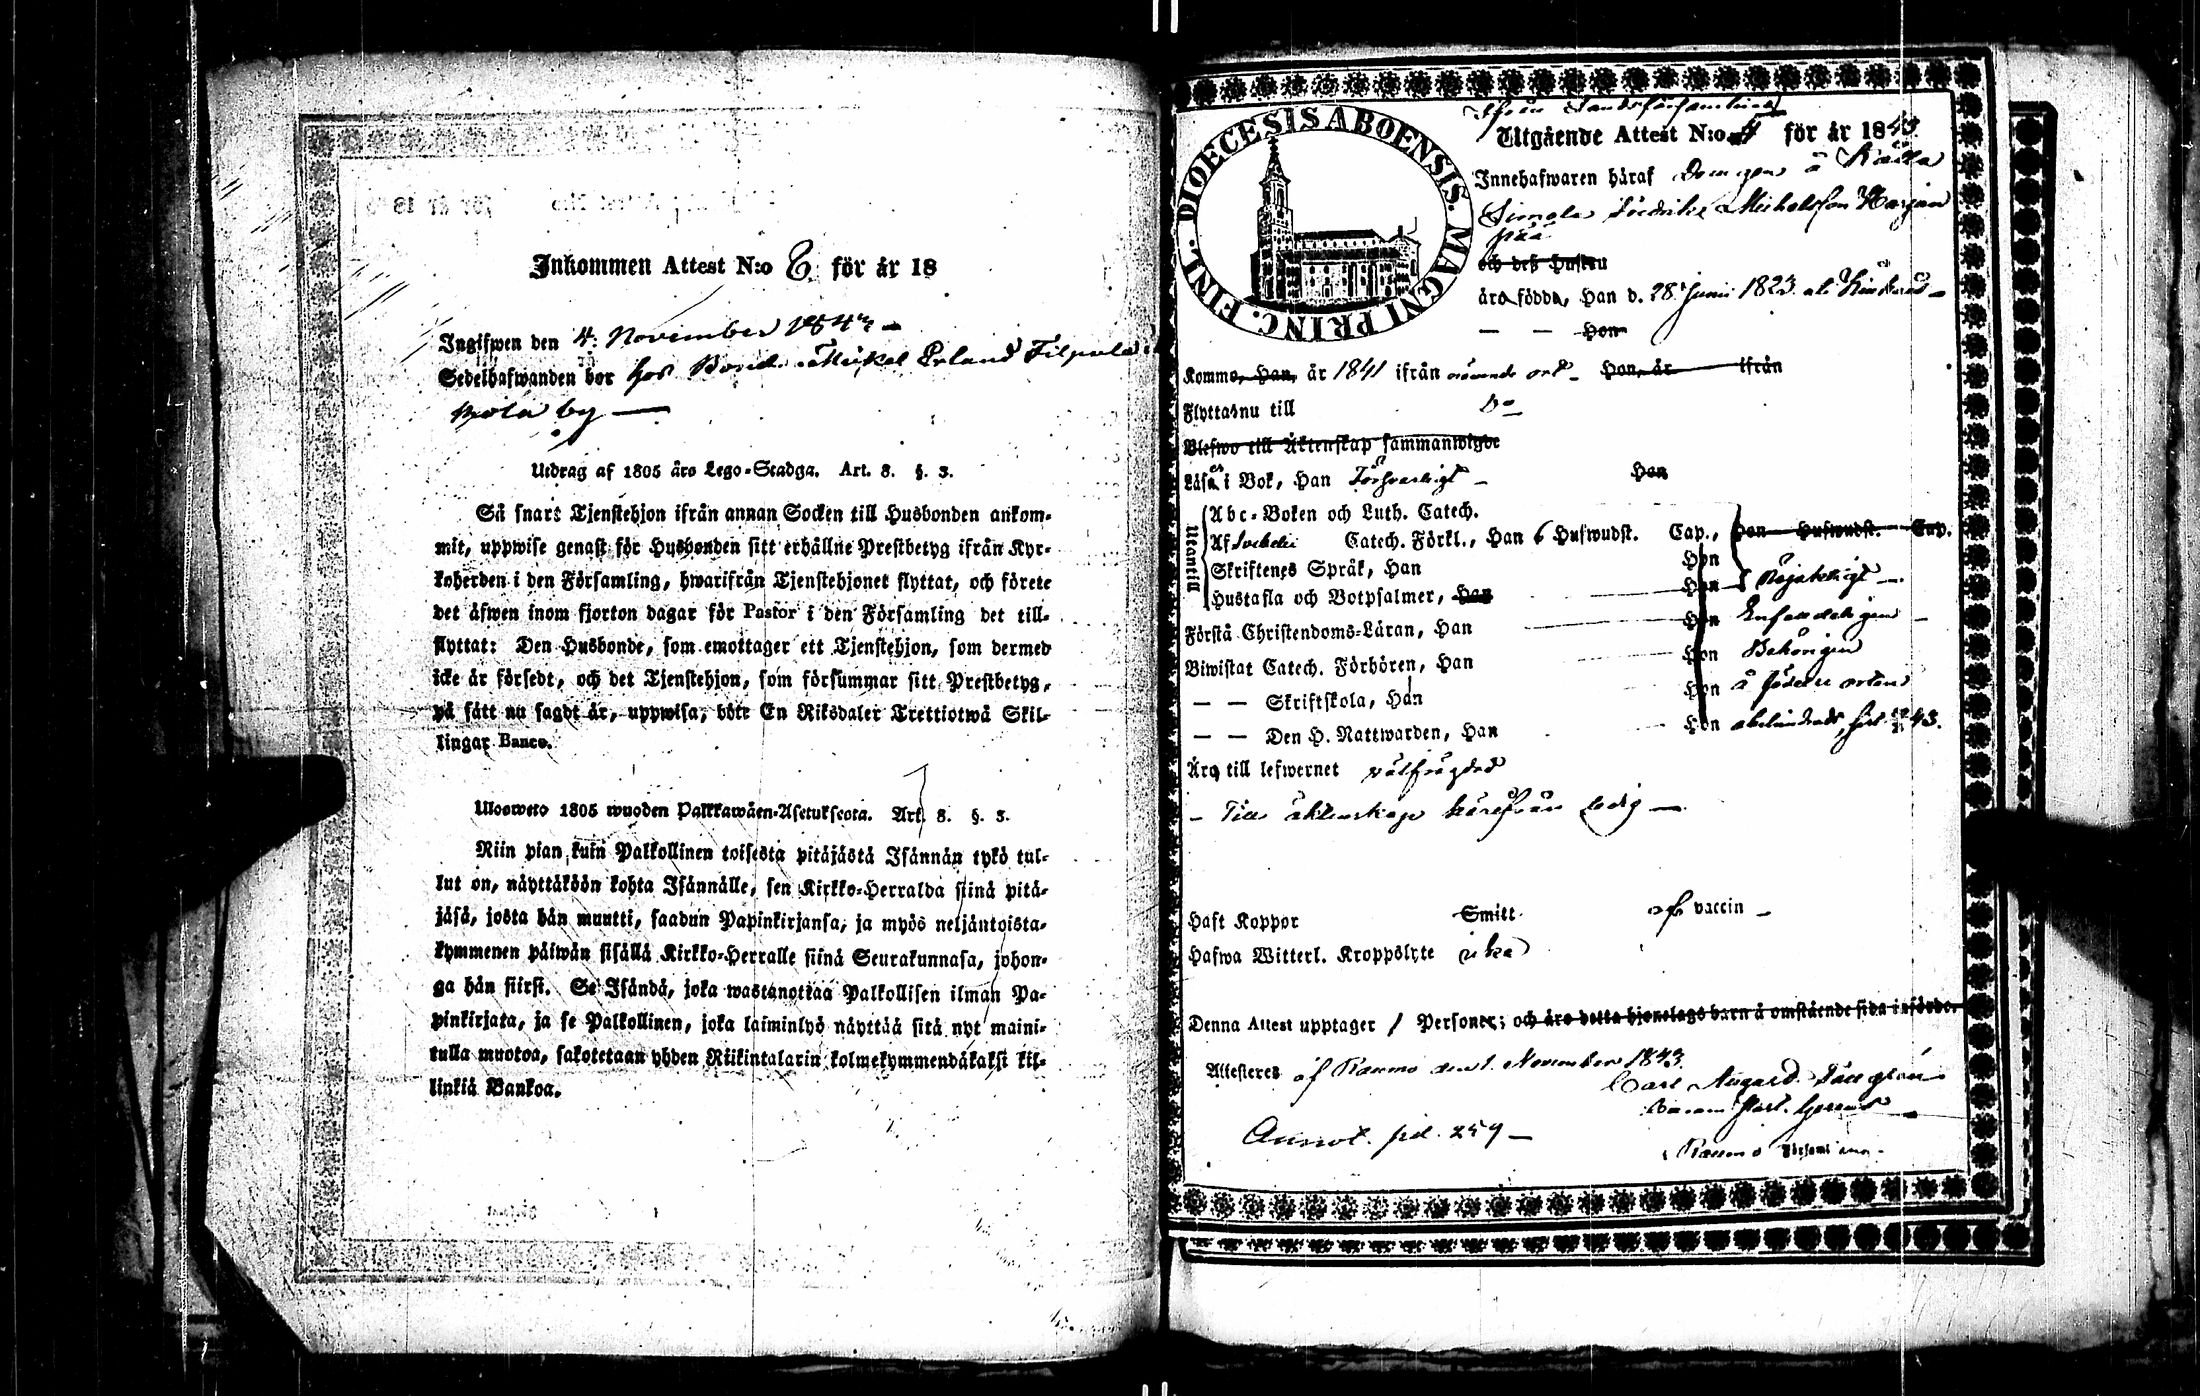 Inkommen Attest N:o 6. för år 18
Ingifwen den 4. November 1843
Sedelhafwanden bor hos Bond. Mickel Erland Filpula i
by
Utdrag af 1805 års Lego-Stadga. Art. 8. §. 3.
Så snart Tjenstehjon ifrån annan Socken till Husbonden ankom-
mit, uppwise genast för Husbonden sitt erhållne Prestbetyg ifrån Kyr-
koherden i den Församling, hwarifrån Tjenstehjonet flyttat, och förete
det äfwen inom fjorton dagar för Pastor i den Församling det till-
flyttat: Den Husbonde, som emottager ett Tjenstehjon, som dermed
icke är försedt, och det Tjenstehjon, som försummar sitt Prestbetyg,
på sätt nu sagdt är, uppwisa, böte En Riksdaler Trettiotwå Skil-
lingar Banco.
Ulosweto 1805 wuoden Palkkawäen-Asetuksesta. Art. 8. §. 3.
Niin pian kuin Palkollinen toisesta pitäjästä Isännän tykö tul-
lut on, näyttäköön kohta Isännälle, sen Kirkko-Herralda siinä pitä-
jäsä, josta hän muutti, saadun Papinkirjansa, ja myös neljäntoista-
kymmenen päiwän sisällä Kirkko-Herralle siinä Seurakunnasa, johon-
ga hän siirst. Se Isändä, joka wastanottaa Palkollisen ilman Pa-
pinkirjata, ja se Palkollinen, joka laiminlyö näyttää sitä nyt maini-
tulla muotoa, sakotetaan yhden Riikintalarin kolmekymmendäkaksi kil-
linkiä Bankoa.
DIOECESIS ABOENSIS. MAGNI PRINC. FINL.
Ifrån Landsförsamling
Utgående Attest N:o 4 för år 1843.
Innehafwaren häraf Drengen å
Simola Fredrik Michelsson
pää
och deß hustru
äro födda, Han d. 28 Junii 1823
— — Hon
Komme, Han, år 1841 ifrån ort Hon, år ifrån
Flytta nu till Do
Blefwo till Äktenskap sammanwigde
Läsa i Bok, Han Försvarligt Hon
Utantill
Abc-Boken och Luth. Catech.
Af Svebelii Catech. Förkl., Han 6 Hufwudst. Cap., Hon Hufwudst. Cap.
Skriftenes Språk, Han Hon
Hustafla och Botpsalmer, Han Hon Nöjaktligt
Förstå Christendoms-Läran, Han Hon Enfaldeligen
Biwistat Catech. Förhören, Han Hon Behörigen
— — Skriftskola, Han Hon å orten
— — Den H. Nattwarden, Han Hon 43.
Äro till lefwernet välfrägdad
Till äktenskap härifrån ledig
Haft Koppor Smitt af vaccin
Hafwa Witterl. Kroppslyte icke
Denna Attest upptager 1 Personer; och äro detta hjonelags barn å omstående sida införde.
Attesteres af Raumo den 1. November 1843.
Carl August
Past.
Raumo Församling
Annot. pd. 259